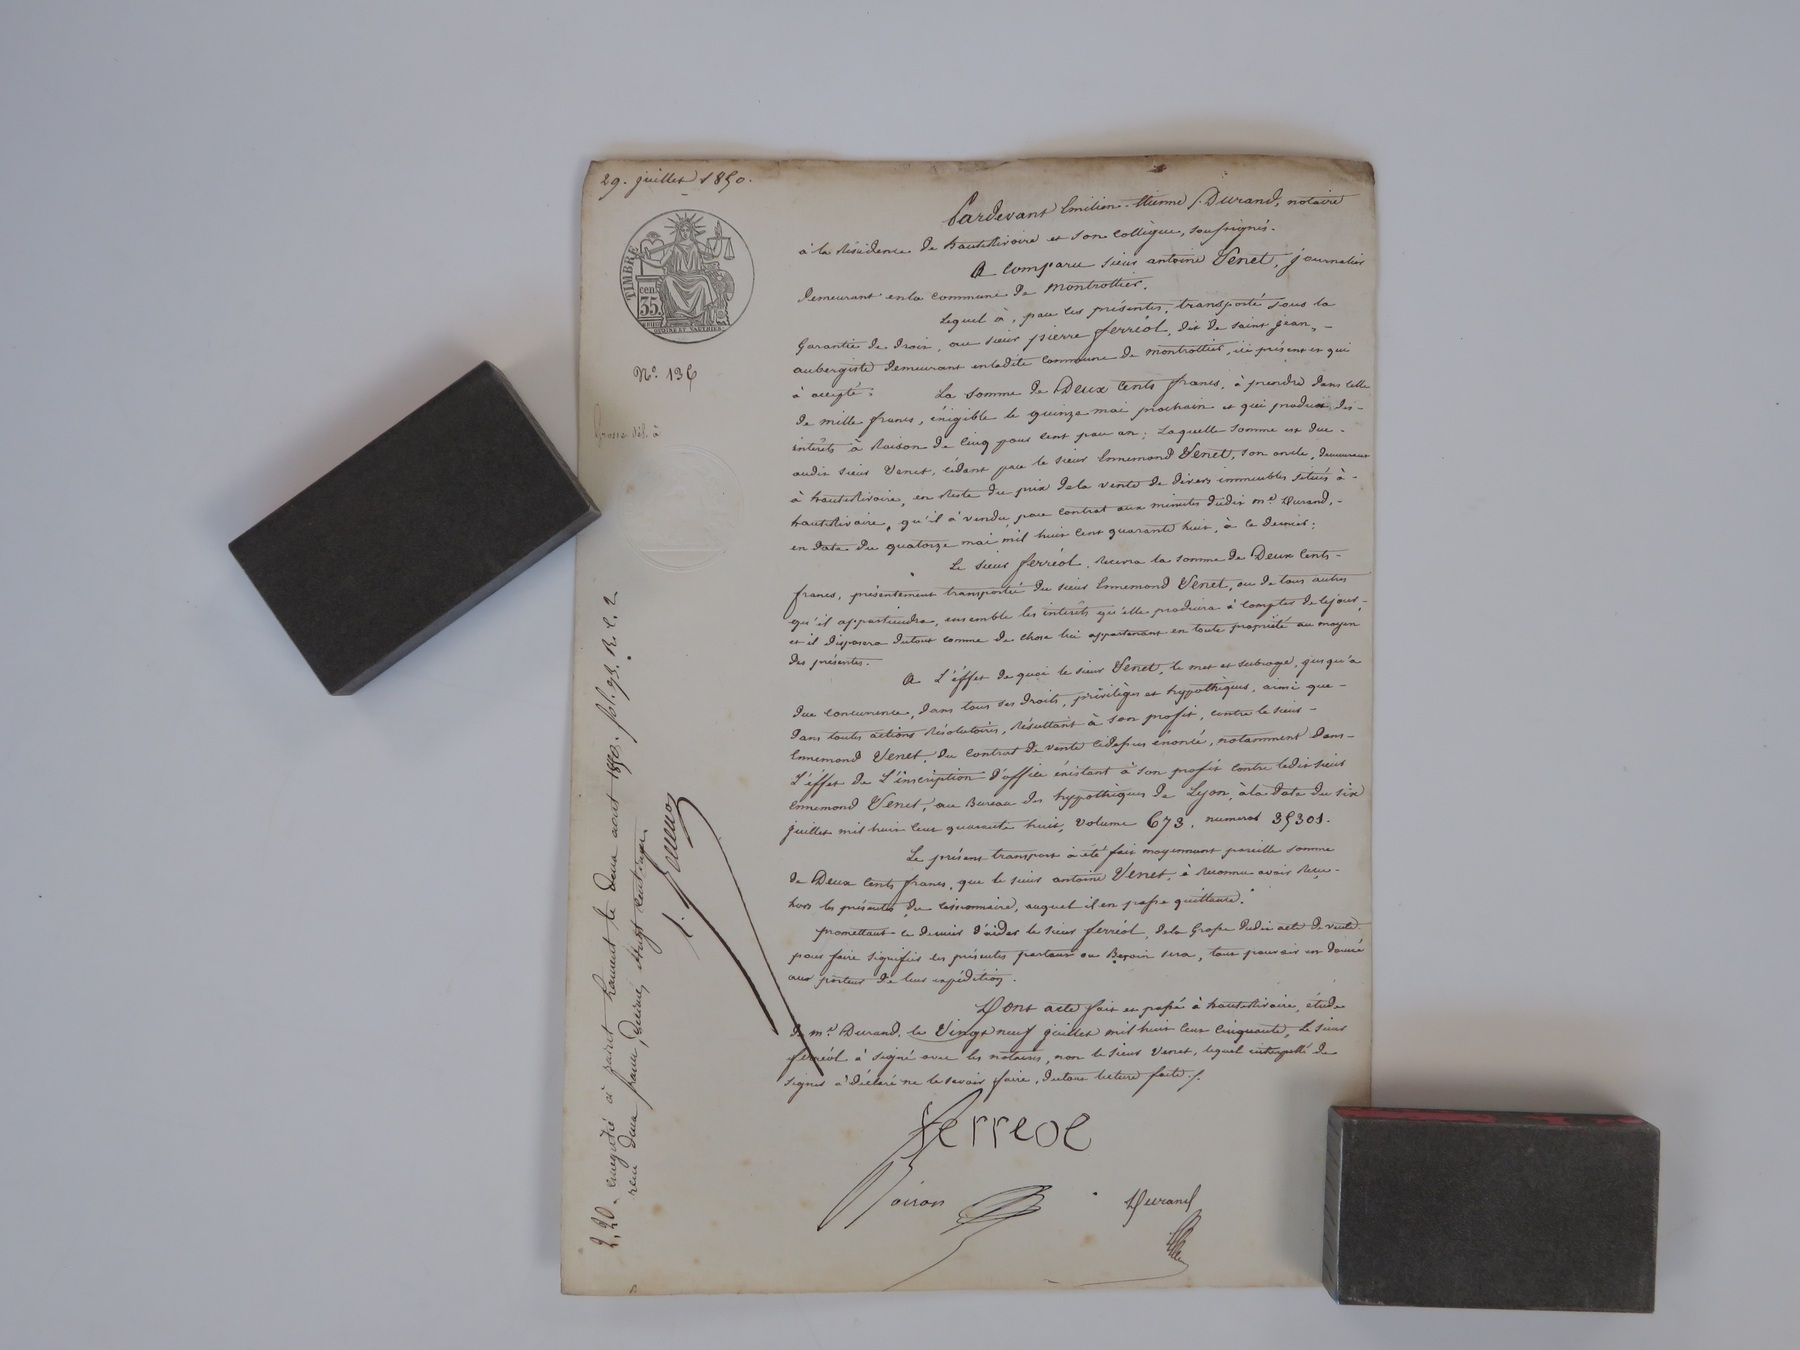 29. juillet 1850.
TIMBRE
cen.
35.
Nº. 136
Grosse dél. à
Pardevant Emilien-Etienne Durand, notaire
à la Résidence de hauterivoire et son collègue, soussignés.
A comparu sieur antoine Venet, journalier
demeurant en la commune de Montrottier.
Lequel à, par ces présentes, transporté sous la
Garantie de droit, au sieur pierre ferréol, dit de saint jean, -
aubergiste demeurant en ladite commune de montrottier, ici présent et qui
à accepté: La somme de Deux cents francs, à prendre dans celle
de mille francs, éxigible le quinze mai prochain et qui produit des-
intérêts à Raison de Cinq pour cent par an; Laquelle somme est due-
audit sieur Venet, cédant par le sieur Ennemond Venet, son oncle, demeurant
à hauterivoire, en Reste du prix de la vente de divers immeubles situés à-
hauterivoire, qu'il à vendu, par contrat aux minutes dudit me. Durand,-
en date du quatorze mai mil huit cent quarante huit, à ce dernier;
Le sieur ferréol, Recevra la somme de Deux Cents-
francs, présentement transportée du sieur Ennemond Venet, ou de tous autres
qu'il appartiendra, ensemble les intérêts qu'elle produira à compter de ce jour-,
et il disposera du tout comme de chose lui appartenant en toute propriété au moyen
des présentes.
A L'éffet de quoi le sieur Venet, le met et subroge, jusqu'à
due concurrence, dans tous ses droits, privilèges et hypothèques, ainsi que-
dans toutes actions Résolutoires, Résultant à son profit, contre le sieur-
Ennemond Venet, du contrat de vente cidessus énoncé, notamment dans-
L'éffet de L'inscription d'office éxistant à son profit contre ledit sieur
Ennemond Venet, au Bureau des hypothèques de Lyon, à la date du six
juillet mil huit cent quarante huit, volume 673. numéro 35301.
Le présent transport à été fait moyennant pareille somme
de Deux Cents francs, que le sieur antoine Venet, à Reconnu avoir Reçue-
hors les présentes du cessionnaire, auquel il en passe quittance.
promettant ce dernier d'aider le sieur ferréol, de la Grosse dudit acte de vente
pour faire signifier les présentes partout ou Besoin sera, tout pouvoir est donné
aux porteur de leur expédition.
Dont acte fait et passé à hauterivoire, étude
de me. Durand. le Vingt neuf juillet mil huit cent cinquante, Le sieur
ferréol à signé avec les notaires, non le sieur Venet, lequel interpellé de
signer à déclaré ne le savoir faire, du tout lecture faite./.
ferreol
Durand
2,20. enregistré à saint Laurent le deux aout 1850. fol. 93. R. C. 2
reçu deux francs, décime, vingt centimes.